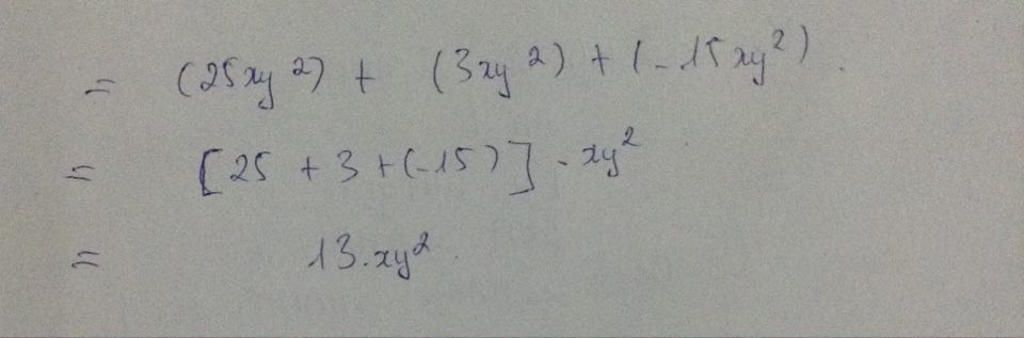 = (25xy²) + (3xy²) + (-15xy²).
= [25 + 3 + (-15)] . xy²
= 13.xy².